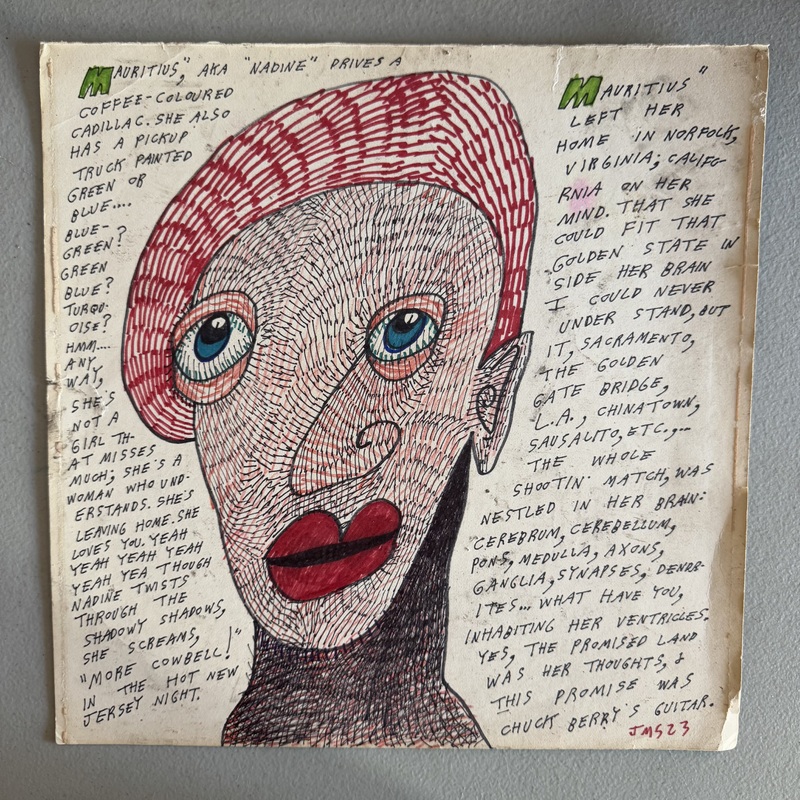 MAURITIUS", AKA "NADINE" DRIVES A
COFFEE-COLOURED
CADILLAC. SHE ALSO
HAS A PICKUP
TRUCK PAINTED
GREEN OR
BLUE....
BLUE-
GREEN?
GREEN
BLUE?
TURQU-
OISE?
HMM....
ANY
WAY,
SHE'S
NOT A
GIRL TH-
AT MISSES
MUCH; SHE'S A
WOMAN WHO UND-
ERSTANDS. SHE'S
LEAVING HOME. SHE
LOVES YOU. YEAH
YEAH YEAH YEAH
YEAH YEA THOUGH
NADINE TWISTS
THROUGH THE
SHADOWY SHADOWS,
SHE SCREAMS,
"MORE COWBELL!"
IN THE HOT NEW
JERSEY NIGHT.
MAURITIUS"
LEFT HER
HOME IN NORFOLK,
VIRGINIA; CALIFO-
RNIA ON HER
MIND. THAT SHE
COULD FIT THAT
GOLDEN STATE IN
SIDE HER BRAIN
I COULD NEVER
UNDER STAND, BUT
IT, SACRAMENTO,
THE GOLDEN
GATE BRIDGE,
L.A., CHINATOWN,
SAUSALITO, ETC.,...
THE WHOLE
SHOOTIN' MATCH, WAS
NESTLED IN HER BRAIN:
CEREBRUM, CEREBELLUM,
PONS, MEDULLA, AXONS,
GANGLIA, SYNAPSES, DENDR-
ITES... WHAT HAVE YOU,
INHABITING HER VENTRICLES.
YES, THE PROMISED LAND
WAS HER THOUGHTS, &
THIS PROMISE WAS
CHUCK BERRY'S GUITAR.
JMS23